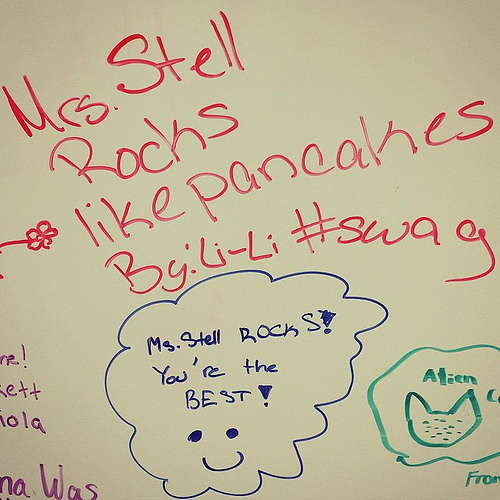 Mrs. Stell
Rocks
like pancakes
By: Li-Li #swag
Ms. Stell ROCKS!
You're the
BEST!
Alien
ne!
kett
iola
na Was
From